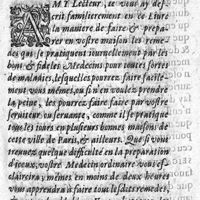 AMY Lecteur, ie vous ay des-
crit familierement en ce Liure
la maniere de faire & prepa-
rer en vostre maison les reme-
des qui se pratiquent iournellement par les
bons & fideles Medecins pour toutes sortes
de maladies, lesquelles pourrez faire facile-
ment vous mêmes, ou si n'en voulez prendre
la peine, les pourrez faire faire par vostre
seruiteur, ou seruante, comme il se pratique
tous les iours en plusieurs bonnes maisons de
cette ville de Paris, & ailleurs. Que si vous
trouuez quelque difficulté en la preparation
d'iceux, vostre Medecin ordinaire vous es-
claircira; mêmes en moins de deux heures
vous apprendra à faire tous lesdits remedes,